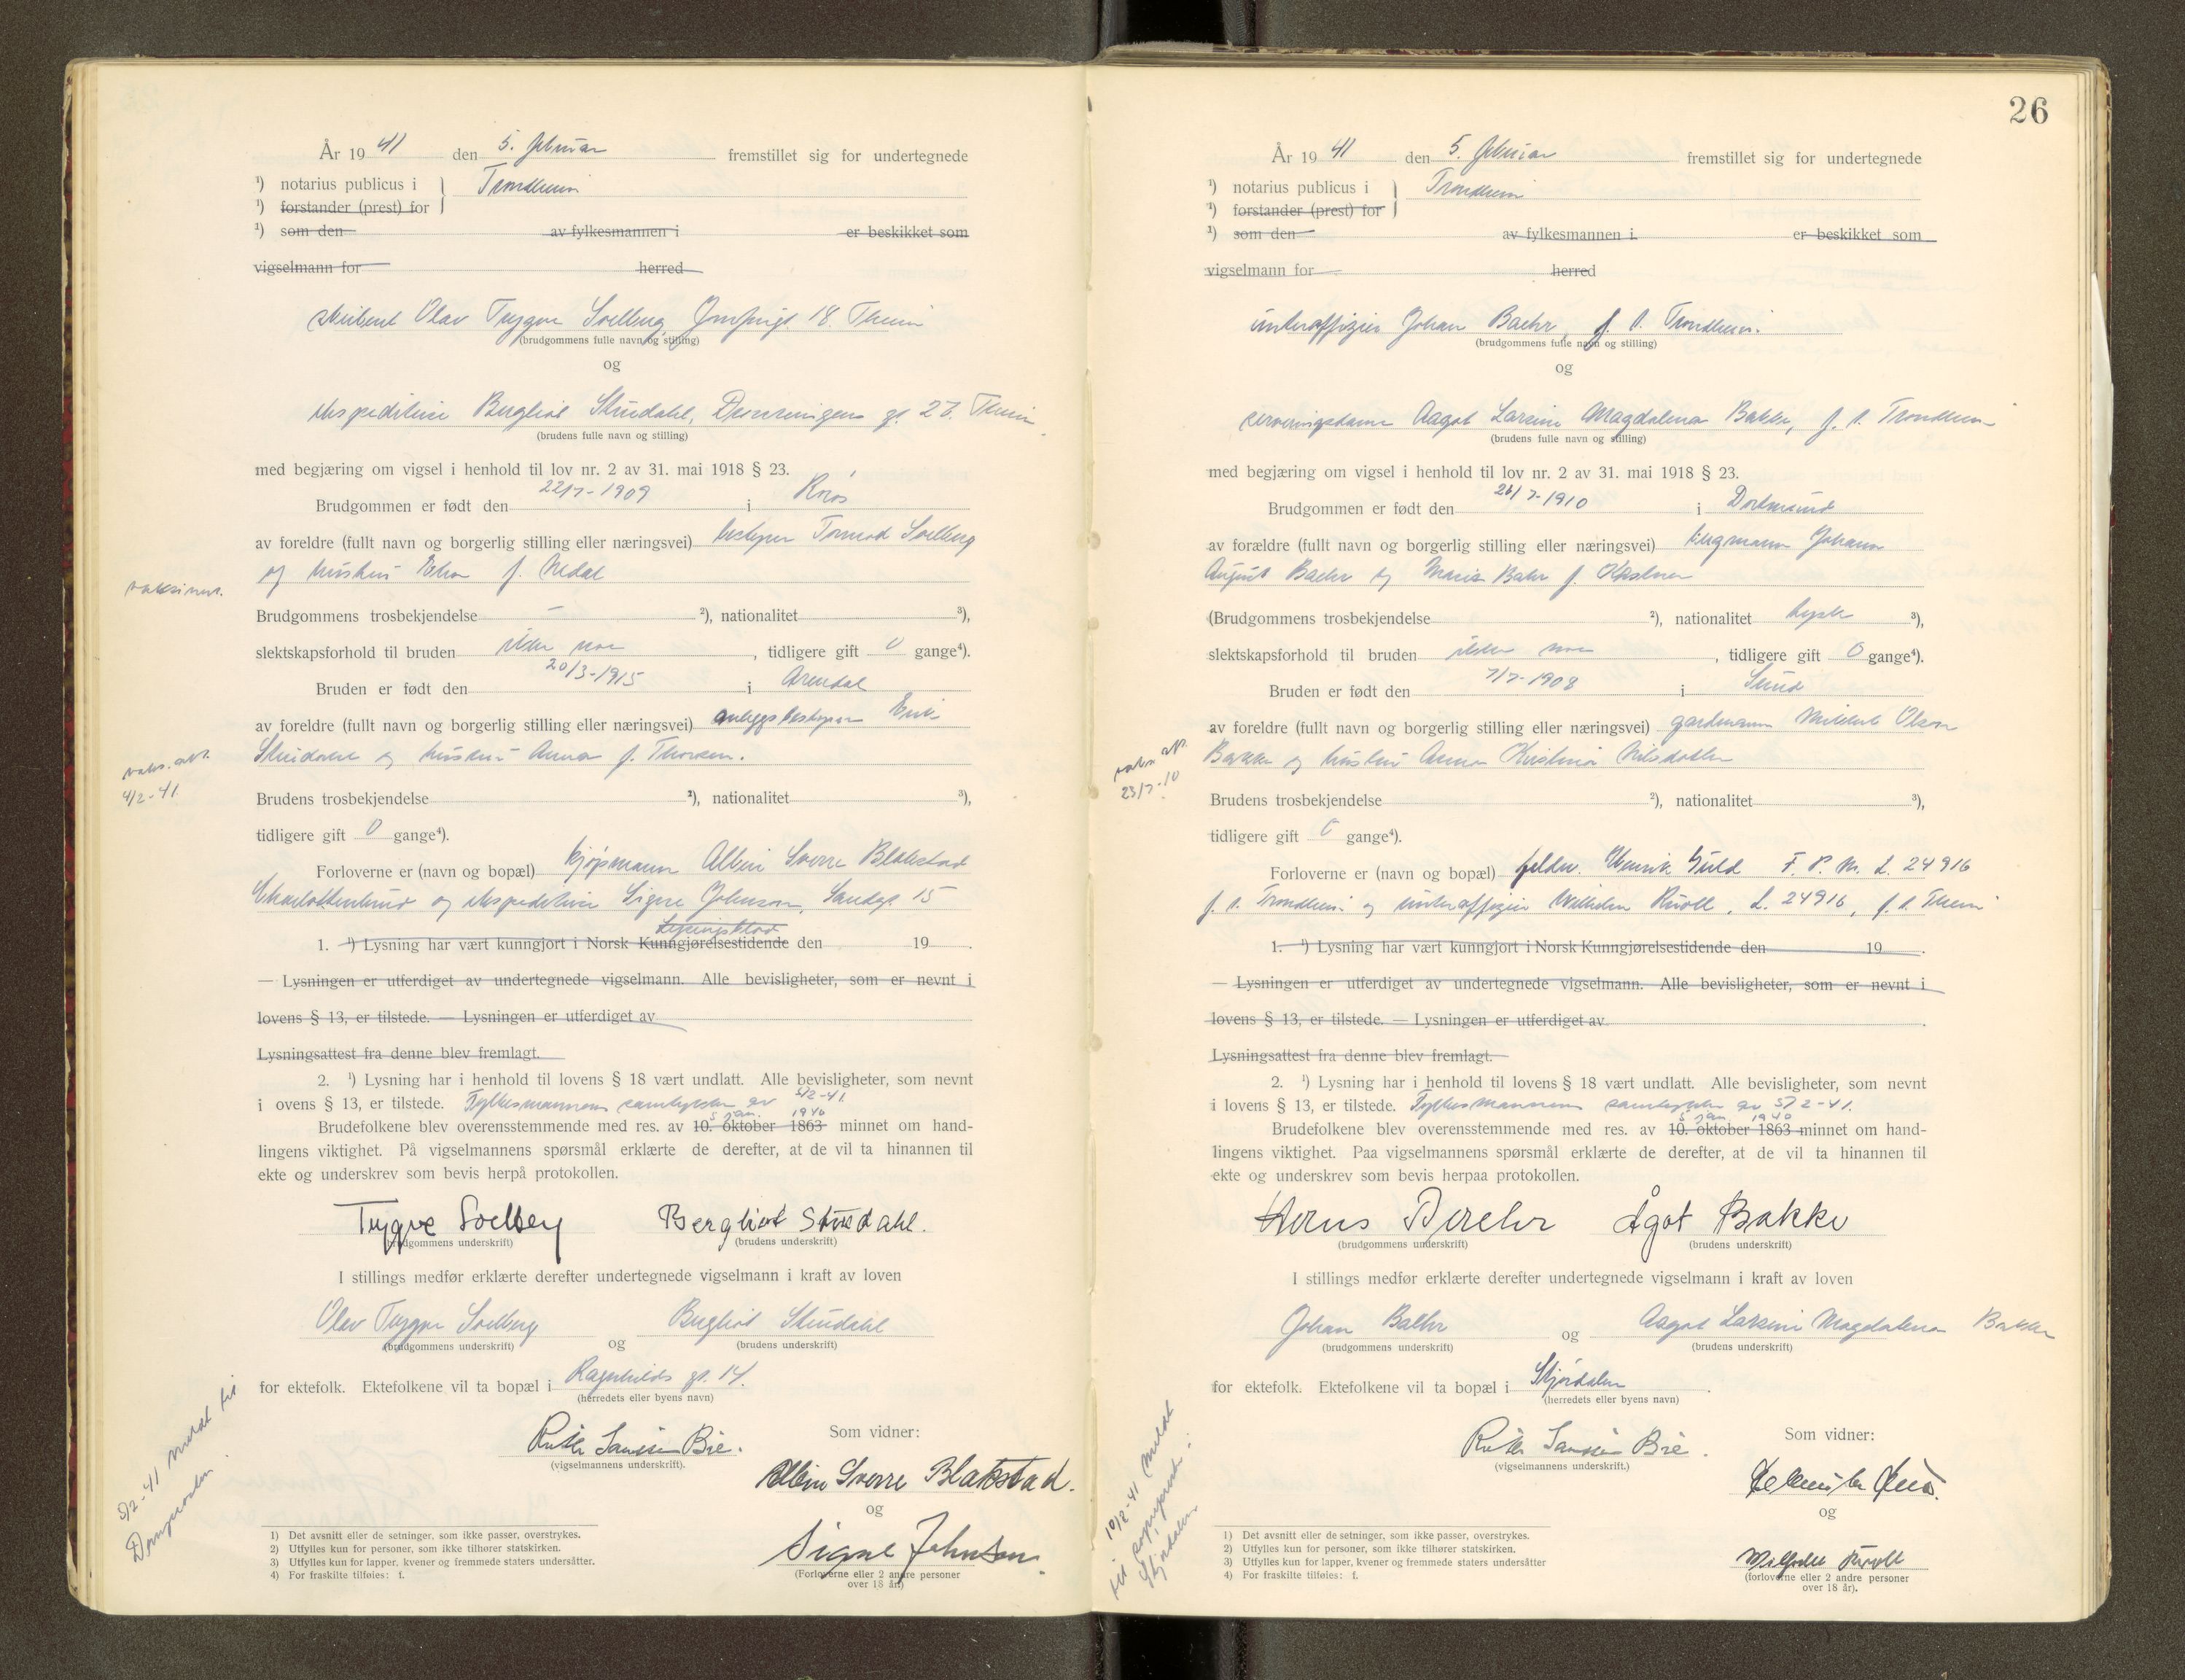 År 19 41 den 5. februar fremstillet sig for undertegnede
¹) notarius publicus i } Trondheim
¹) forstander (prest) for
¹) som den av fylkesmannen i er beskikket som
vigselmann for herred
Olav Trygve Solberg, 18. Theim
(brudgommens fulle navn og stilling)
og
ekspeditrise Bergliot Studahl, gt. 27. Theim
(brudens fulle navn og stilling)
med begjæring om vigsel i henhold til lov nr. 2 av 31. mai 1918 § 23.
Brudgommen er født den 22/7-1909 i Røros
av foreldre (fullt navn og borgerlig stilling eller næringsvei) bestyrer Tormod Solberg
og hustru f. Nedal
vaksinert.
Brudgommens trosbekjendelse — ²), nationalitet ³),
slektskapsforhold til bruden uten noe, tidligere gift 0 gange⁴).
Bruden er født den 20/3-1915 i Arendal
av foreldre (fullt navn og borgerlig stilling eller næringsvei) anleggsbestyrer
Studahl og hustru Anna f. Thorsen.
vaks. att.
4/2-41.
Brudens trosbekjendelse ²), nationalitet ³),
tidligere gift 0 gange⁴).
Forloverne er (navn og bopæl) kjøpmann Albin Sverre Blakstad
Charlottenlund og ekspeditrise Signe Johnson, Sandgt 15
Lysningsblad
1. ¹) Lysning har vært kunngjort i Norsk Kunngjørelsestidende den 19 .
— Lysningen er utferdiget av undertegnede vigselmann. Alle bevisligheter, som er nevnt i
lovens § 13, er tilstede. — Lysningen er utferdiget av
Lysningsattest fra denne blev fremlagt.
2. ¹) Lysning har i henhold til lovens § 18 vært undlatt. Alle bevisligheter, som nevnt
i ovens § 13, er tilstede. Fylkesmannens samtykke av 5/2-41.
5 jan. 1940
Brudefolkene blev overensstemmende med res. av 10. oktober 1863 minnet om hand-
lingens viktighet. På vigselmannens spørsmål erklærte de derefter, at de vil ta hinannen til
ekte og underskrev som bevis herpå protokollen.
Trygve Solberg Bergliot Studahl.
(brudgommens underskrift) (brudens underskrift)
I stillings medfør erklærte derefter undertegnede vigselmann i kraft av loven
Olav Trygve Solberg og Bergliot Studahl
(brudgommens underskrift) (brudens underskrift)
for ektefolk. Ektefolkene vil ta bopæl i Ragnhilds gt. 14.
(herredets eller byens navn)
Som vidner:
Ruth Sanssen Bie.
(vigselmannens underskrift).
Albin Sverre Blakstad.
og
Signe Johnson.
(Forloverne eller 2 andre personer
over 18 år)
5/2-41 meldt til
Domprosten.
1) Det avsnitt eller de setninger, som ikke passer, overstrykes.
2) Utfylles kun for personer, som ikke tilhører statskirken.
3) Utfylles kun for lapper, kvener og fremmede staters undersåtter.
4) For fraskilte tilføies: f.
26
År 19 41 den 5. februar fremstillet sig for undertegnede
¹) notarius publicus i } Trondheim
¹) forstander (prest) for
¹) som den av fylkesmannen i er beskikket som
vigselmann for herred
unteroffizier Johan Baehr, f. t. Trondheim.
(brudgommens fulle navn og stilling)
og
serveringsdame Aagot Larsine Magdalena Bakke, f. t. Trondheim
(brudens fulle navn og stilling)
med begjæring om vigsel i henhold til lov nr. 2 av 31. mai 1918 § 23.
Brudgommen er født den 26/7-1910 i Dortmund
av forældre (fullt navn og borgerlig stilling eller næringsvei) Johann
August Baehr og Maria Bahr f.
(Brudgommens trosbekjendelse ²), nationalitet tysk ³),
slektskapsforhold til bruden uten noe, tidligere gift 0 gange⁴).
Bruden er født den 7/7-1908 i Sund
av foreldre (fullt navn og borgerlig stilling eller næringsvei) gardmann Olsen
Bakke og hustru Anna Kristina Nilsdatter
vaks. att.
23/7-10
Brudens trosbekjendelse ²), nationalitet ³),
tidligere gift 0 gange⁴).
Forloverne er (navn og bopæl) feldw. Henrik Guld F. P. N. L. 24916
f. t. Trondheim og unteroffizier Wilhelm Knoll, L. 24916, f. t. Theim
1. ¹) Lysning har vært kunngjort i Norsk Kunngjørelsestidende den 19 .
— Lysningen er utferdiget av undertegnede vigselmann. Alle bevisligheter, som er nevnt i
lovens § 13, er tilstede. — Lysningen er utferdiget av .
Lysningsattest fra denne blev fremlagt.
2. ¹) Lysning har i henhold til lovens § 18 vært undlatt. Alle bevisligheter, som nevnt
i lovens § 13, er tilstede. Fylkesmannens samtykke av 5/2-41.
5 jan 1940
Brudefolkene blev overensstemmende med res. av 10. oktober 1863 minnet om hand-
lingens viktighet. Paa vigselmannens spørsmål erklærte de derefter, at de vil ta hinannen til
ekte og underskrev som bevis herpaa protokollen.
Hans Baehr Ågot Bakke
(brudgommens underskrift) (brudens underskrift)
I stillings medfør erklærte derefter undertegnede vigselmann i kraft av loven
Johan Baehr og Aagot Larsine Magdalena Bakke
(brudgommens underskrift) (brudens underskrift)
for ektefolk. Ektefolkene vil ta bopæl i Stjørdalen .
(herredets eller byens navn)
Som vidner:
Ruth Sanssen Bie.
(vigselmannens underskrift.)
og
Knoll
(forloverne eller 2 andre personer
over 18 år).
10/2-41 meldt
til sogneprest i
Stjørdalen
1) Det avsnitt eller de setninger, som ikke passer, overstrykes.
2) Utfylles kun for personer, som ikke tilhører statskirken.
3) Utfylles kun for lapper, kvener og fremmede staters undersåtter
4) For fraskilte tilføies: f.